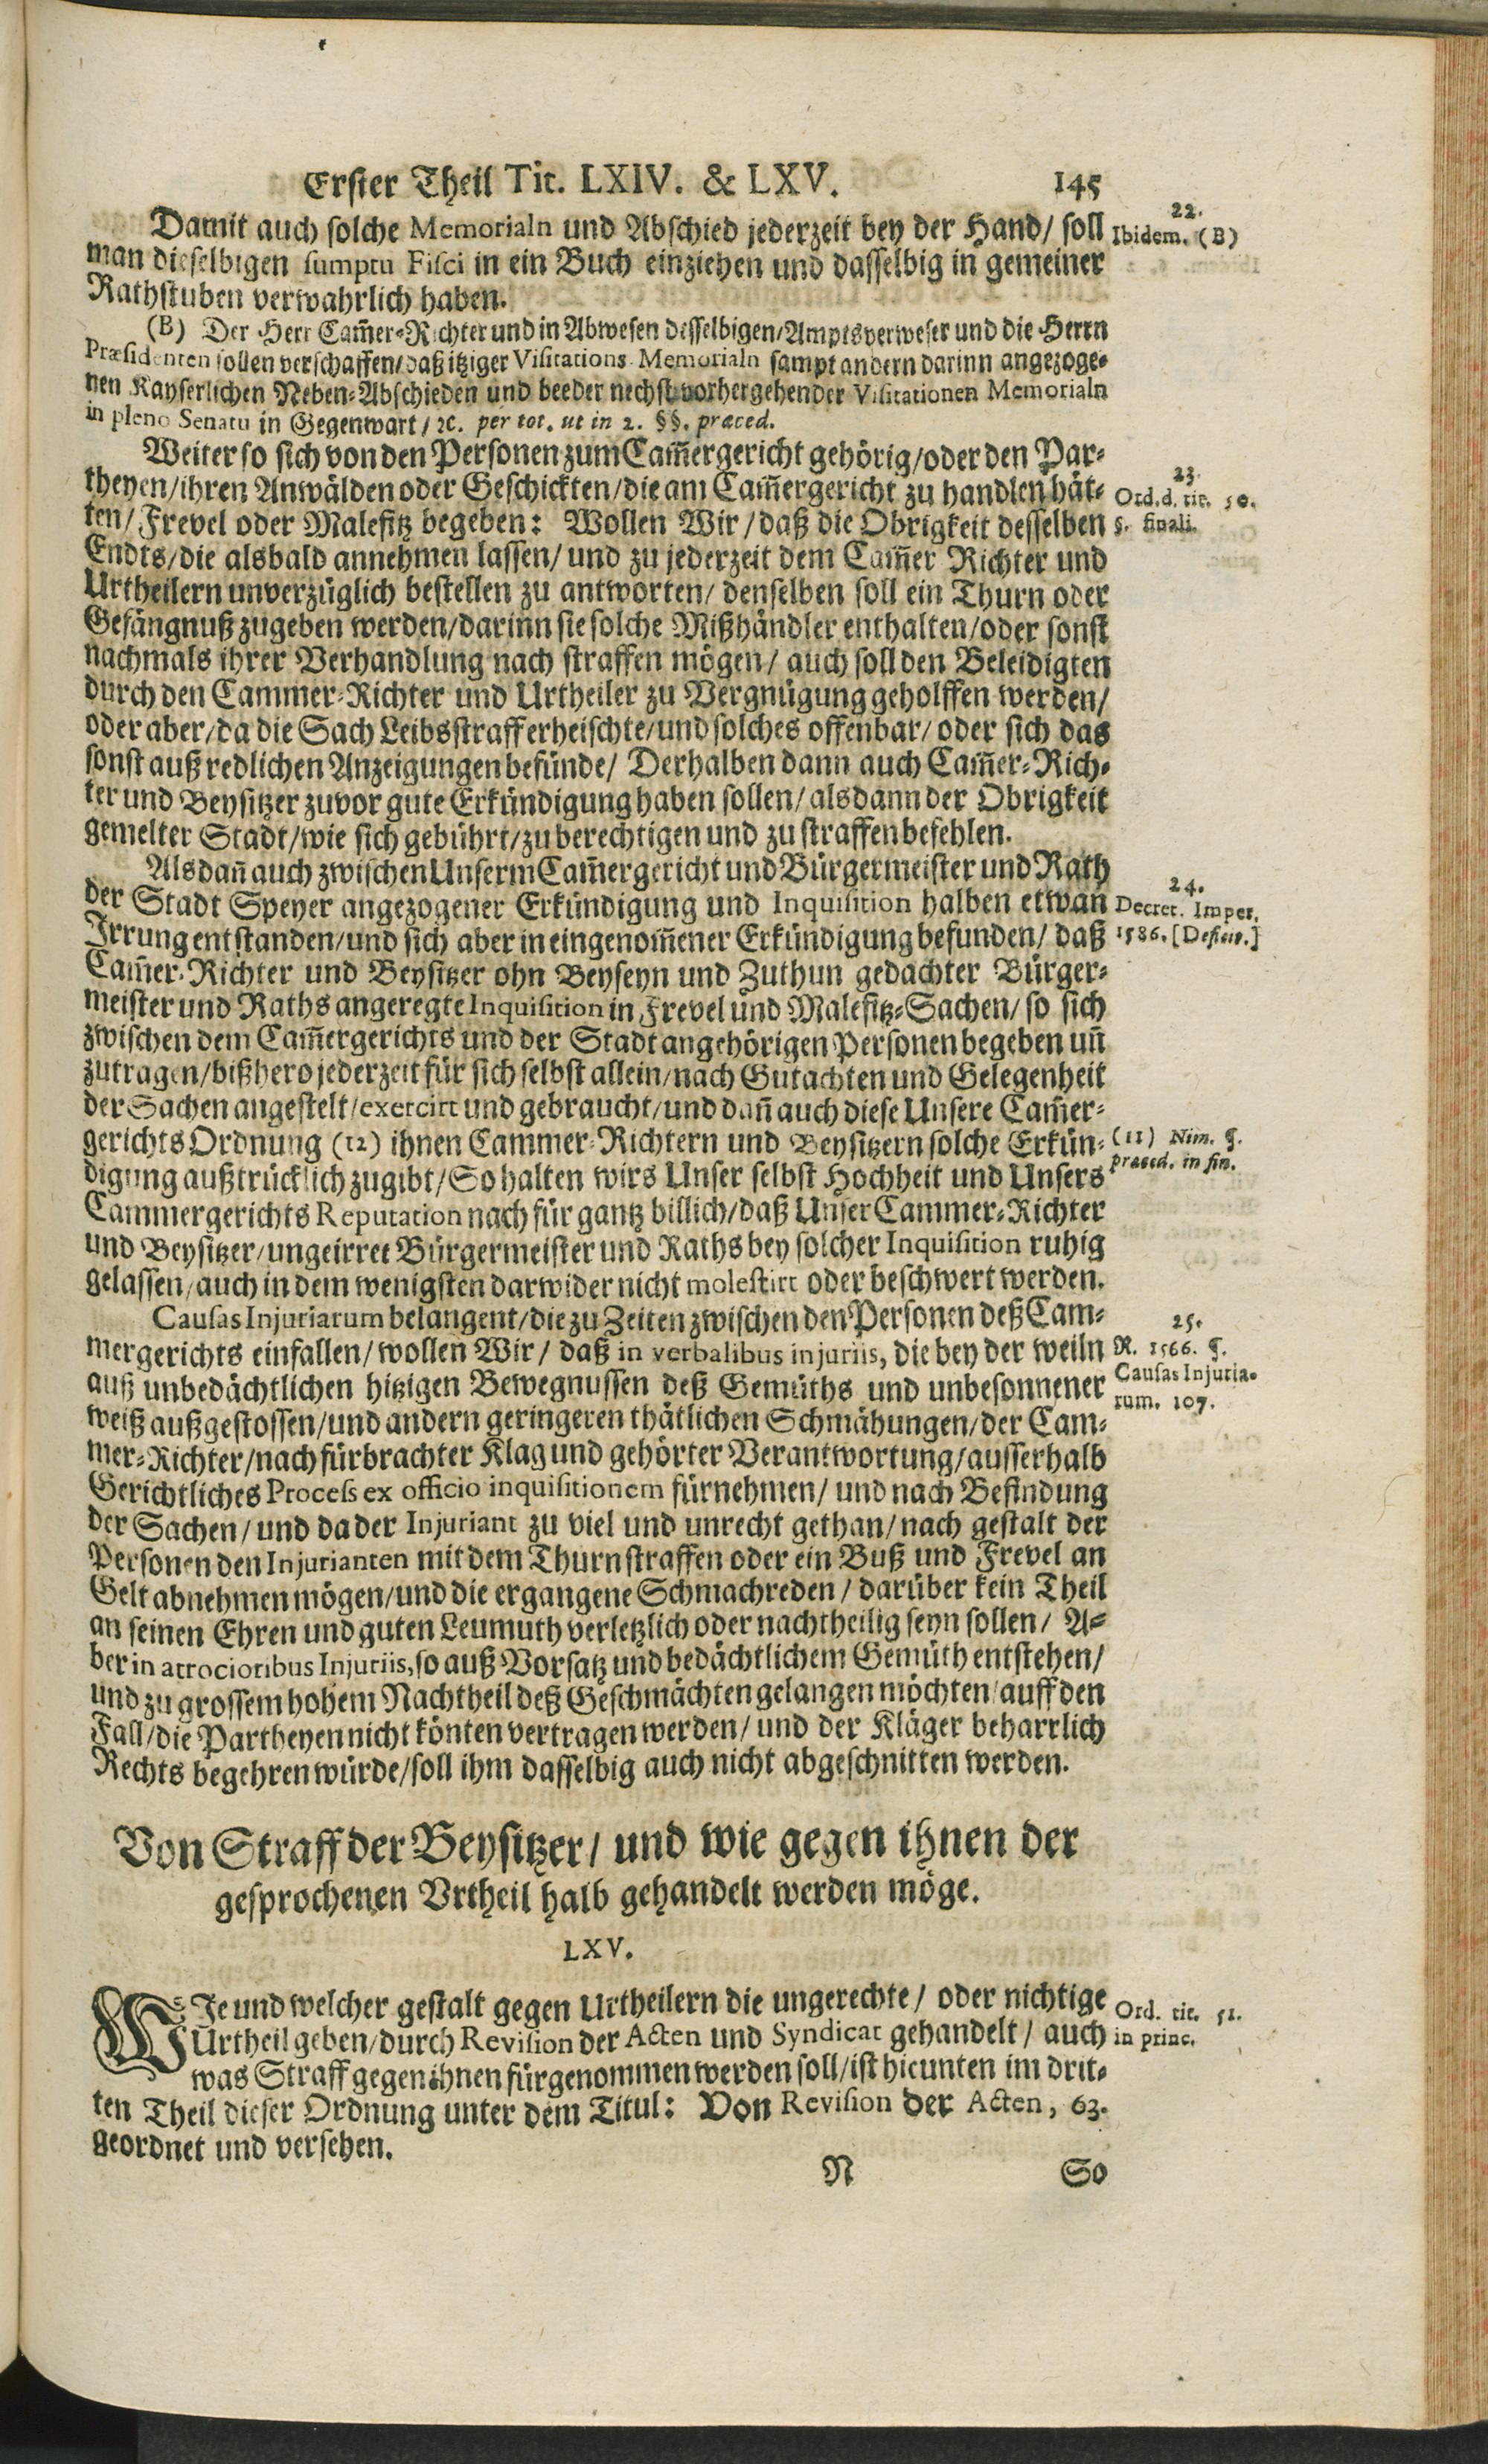 Erster Theil Tit. LXIV. & LXV. 145
Damit auch solche Memorialn und Abschied jederzeit bey der Hand / soll
man dieselbigen sumptu Fisci in ein Buch einziehen und dasselbig in gemeiner
Rathstuben verwahrlich haben.
22.
Ibidem. (B)
(B) Der Herr Cam̄er-Richter und in Abwesen desselbigen / Amptsverweser und die Herrn
Præsidenten sollen verschaffen / daß itziger Visitations-Memorialn sampt andern darinn angezoge-
nen Kayserlichen Neben-Abschieden und beeder nechst vorhergehender Visitationen Memorialn
in pleno Senatu in Gegenwart / ꝛc. per tot. ut in 2. §§. præced.
Weiter so sich von den Personen zum Cam̄ergericht gehörig / oder den Par-
theyen / ihren Anwälden oder Geschickten / die am Cam̄ergericht zu handlen hät-
ten / Frevel oder Malefitz begeben: Wollen Wir / daß die Obrigkeit desselben
Endts / die alsbald annehmen lassen / und zu jederzeit dem Cam̄er Richter und
Urtheilern unverzüglich bestellen zu antworten / denselben soll ein Thurn oder
Gefängnuß zugeben werden / darinn sie solche Mißhändler enthalten / oder sonst
nachmals ihrer Verhandlung nach straffen mögen / auch soll den Beleidigten
durch den Cammer-Richter und Urtheiler zu Vergnügung geholffen werden /
oder aber / da die Sach Leibsstraff erheischte / und solches offenbar / oder sich das
sonst auß redlichen Anzeigungen befünde / Derhalben dann auch Cam̄er-Rich-
ter und Beysitzer zuvor gute Erkündigung haben sollen / alsdann der Obrigkeit
gemelter Stadt / wie sich gebührt / zu berechtigen und zu straffen befehlen.
23.
Ord. d. tit. 50.
§. finali.
Als dan̄ auch zwischen Unserm Cam̄ergericht und Bürgermeister und Rath
der Stadt Speyer angezogener Erkündigung und Inquisition halben etwan
Irrung entstanden / und sich aber in eingenom̄ener Erkündigung befunden / daß
Cam̄er-Richter und Beysitzer ohn Beyseyn und Zuthun gedachter Bürger-
meister und Raths angeregte Inquisition in Frevel und Malefitz-Sachen / so sich
zwischen dem Cam̄ergerichts und der Stadt angehörigen Personen begeben un̄
zutragen / bißhero jederzeit für sich selbst allein / nach Gutachten und Gelegenheit
der Sachen angestelt / exercirt und gebraucht / und dan̄ auch diese Unsere Cam̄er-
gerichts Ordnung (12) ihnen Cammer-Richtern und Beysitzern solche Erkün-
digung außtrücklich zugibt / So halten wirs Unser selbst Hochheit und Unsers
Cammergerichts Reputation nach für gantz billich / daß Unser Cammer-Richter
und Beysitzer / ungeirret Bürgermeister und Raths bey solcher Inquisition ruhig
gelassen / auch in dem wenigsten darwider nicht molestirt oder beschwert werden.
24.
Decret. Imper.
1586. [Deficit.]
(11) Nim. §.
præced. in fin.
Causas Injuriarum belangent / die zu Zeiten zwischen den Personen deß Cam-
mergerichts einfallen / wollen Wir / daß in verbalibus injuriis, die bey der weiln
auß unbedächtlichen hitzigen Bewegnussen deß Gemüths und unbesonnener
weiß außgestossen / und andern geringeren thätlichen Schmähungen / der Cam-
mer-Richter / nach fürbrachter Klag und gehörter Verantwortung / ausserhalb
Gerichtliches Process ex officio inquisitionem fürnehmen / und nach Befindung
der Sachen / und da der Injuriant zu viel und unrecht gethan / nach gestalt der
Personen den Injurianten mit dem Thurn straffen oder ein Buß und Frevel an
Gelt abnehmen mögen / und die ergangene Schmachreden / darüber kein Theil
an seinen Ehren und guten Leumuth verletzlich oder nachtheilig seyn sollen / A-
ber in atrocioribus Injuriis, so auß Vorsatz und bedächtlichem Gemüth entstehen /
und zu grossem hohem Nachtheil deß Geschmächten gelangen möchten / auff den
Fall / die Partheyen nicht könten vertragen werden / und der Kläger beharrlich
Rechts begehren würde / soll ihm dasselbig auch nicht abgeschnitten werden.
25.
R. 1566. §.
Causas Injuria-
rum. 107.
Von Straff der Beysitzer / und wie gegen ihnen der
gesprochenen Vrtheil halb gehandelt werden möge.
LXV.
WIe und welcher gestalt gegen Urtheilern die ungerechte / oder nichtige
Urtheil geben / durch Revision der Acten und Syndicat gehandelt / auch
was Straff gegen ihnen fürgenommen werden soll / ist hieunten im drit-
ten Theil dieser Ordnung unter dem Titul: Von Revision der Acten, 63.
geordnet und versehen.
Ord. tit. 51.
in princ.
N So